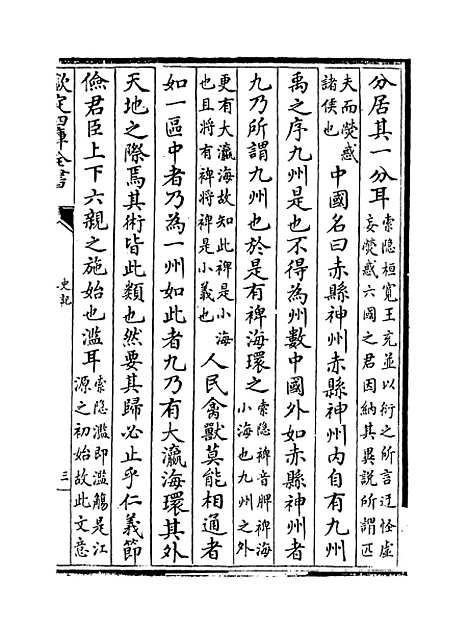 分居其一分耳索隐桓寛王充並以衍之所言迂怪虛
妄熒惑六國之君因納其異説所謂匹
夫而熒惑
諸侯也 中國名曰赤縣神州赤縣神州内自有九州
禹之序九州是也不得為州數中國外如赤縣神州者
九乃所謂九州也於是有裨海環之索隐裨音脾裨海
小海也九州之外
更有大瀛海故知此裨是小海
也且將有裨將裨是小義也 人民禽獸莫能相通者
如一區中者乃為一州如此者九乃有大瀛海環其外
天地之際焉其術皆此類也然要其歸必止乎仁義節
儉君臣上下六親之施始也濫耳索隐濫即濫觴是江
源之初始故此文意
欽定四庫全書
史記
三